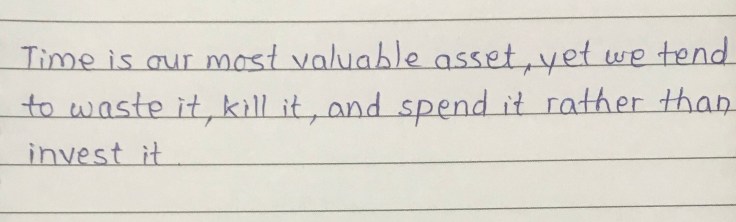 Time is our most valuable asset, yet we tend
to waste it, kill it, and spend it rather than
invest it